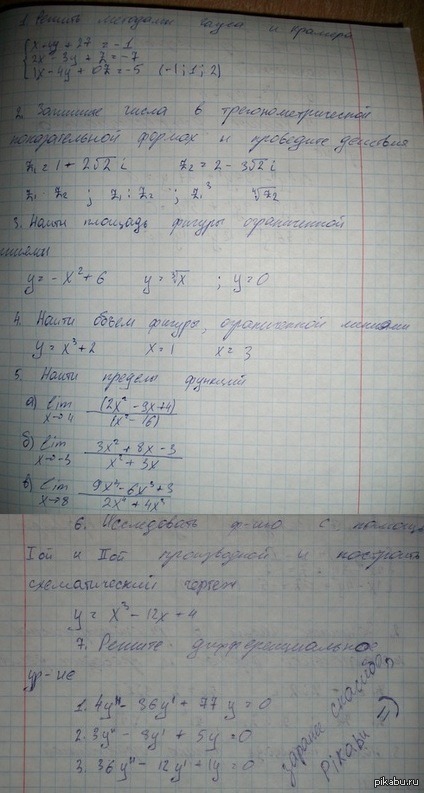 1. Решить методами гаусса и крамера
x-4y+2z = -1
2x-3y+z=-7
1x-4y+0z=-5 (-1;1;2)
2. Запишите числа в трегонометрической
показательной формах и проведите действие
z₁=1+2√2 i z₂=2-3√2 i
z₁·z₂ ; z₁:z₂ ; z₁³
3. Найти площадь фигуры ограниченной
линиями
y=-x²+6 y=∛x ; y=0
4. Найти объем фигуры, ограниченной линиями
y=x³+2 x=1 x=3
5. Найти пределы функций
а) lim x→4 (2x²-9x+4)/(x²-16)
б) lim x→-3 3x²+8x-3/x²+3x
в) lim x→8 9x⁴-6x³+3/2x⁴+4x³
6. Исследовать ф-ию с помощью
Iой и IIой производной и построить
схематический чертеж
y= x³-12x+4
7. Решите дифференциальное
ур-ие
1. 4y"-36y'+77y=0
2. 3y"-8y'+5y=0
3. 36y"-12y'+1y=0
заранее спасибо
Pikabu =)
pikabu.ru